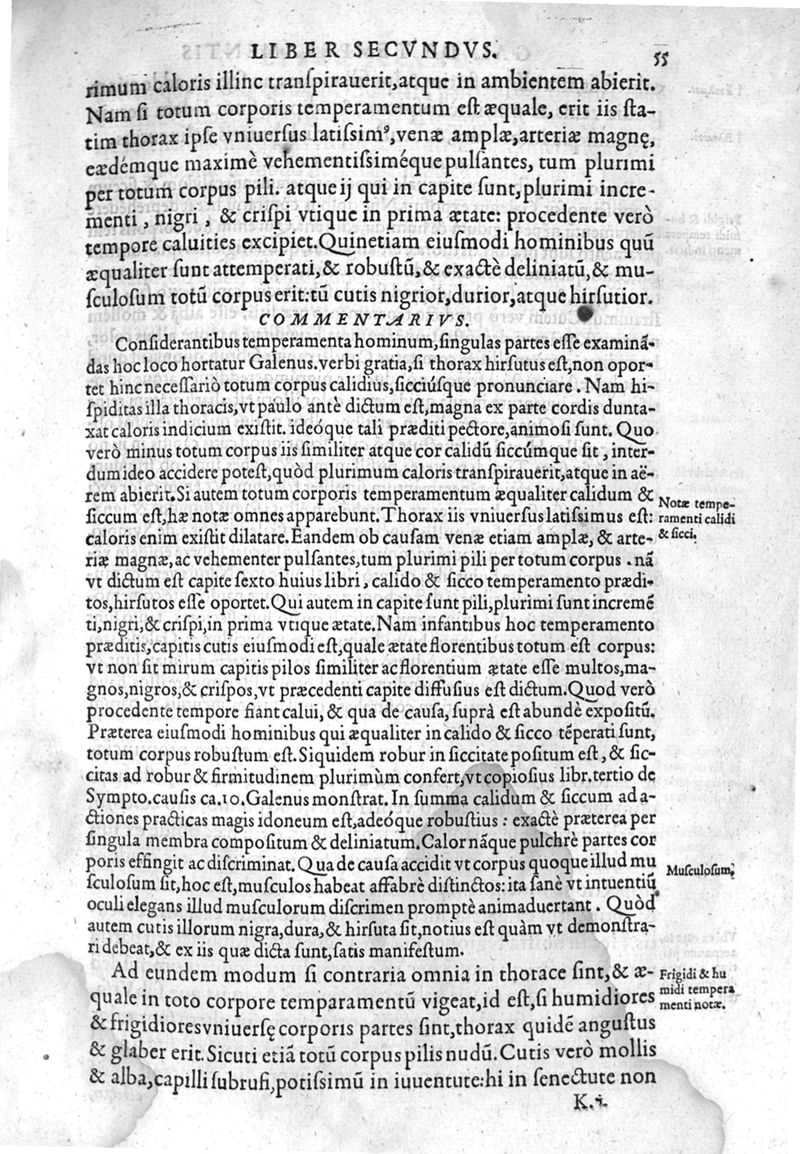 LIBER SECVNDVS.
55
rimum caloris illinc tranſpirauerit,atque in ambientem abierit.
Nam ſi totum corporis temperamentum eſt æquale, erit iis ſta-
tim thorax ipſe vniuerſus latiſsimꝰ,venæ amplæ,arteriæ magnę,
eædémque maximè vehementiſsiméque pulſantes, tum plurimi
per totum corpus pili. atque ij qui in capite ſunt,plurimi incre-
menti , nigri , & criſpi vtique in prima ætate: procedente verò
tempore caluities excipiet.Quinetiam eiuſmodi hominibus quū
æqualiter ſunt attemperati,& robuſtū,& exactè deliniatū,& mu-
ſculoſum totū corpus erit:tū cutis nigrior,durior,atque hirſutior.
COMMENTARIVS.
Conſiderantibus temperamenta hominum,ſingulas partes eſſe examinā-
das hoc loco hortatur Galenus.verbi gratia,ſi thorax hirſutus eſt,non opor-
tet hinc neceſſariò totum corpus calidius,ſicciúſque pronunciare . Nam hi-
ſpiditas illa thoracis,vt paulo antè dictum eſt,magna ex parte cordis dunta-
xat caloris indicium exiſtit. ideóque tali præditi pectore,animoſi ſunt. Quo
verò minus totum corpus iis ſimiliter atque cor calidū ſiccúmque ſit , inter-
dum ideo accidere poteſt,quòd plurimum caloris tranſpirauerit,atque in aë-
rem abierit.Si autem totum corporis temperamentum æqualiter calidum &
ſiccum eſt,hæ notæ omnes apparebunt.Thorax iis vniuerſus latiſsimus eſt:
caloris enim exiſtit dilatare. Eandem ob cauſam venæ etiam amplæ, & arte-
riæ magnæ, ac vehementer pulſantes,tum plurimi pili per totum corpus . nā
vt dictum eſt capite ſexto huius libri, calido & ſicco temperamento prædi-
tos,hirſutos eſſe oportet.Qui autem in capite ſunt pili,plurimi ſunt incremē
ti,nigri,& criſpi,in prima vtique ætate.Nam infantibus hoc temperamento
præditis,capitis cutis eiuſmodi eſt,quale ætate florentibus totum eſt corpus:
vt non ſit mirum capitis pilos ſimiliter ac florentium ætate eſſe multos,ma-
gnos,nigros,& criſpos,vt præcedenti capite diffuſius eſt dictum.Quod verò
procedente tempore fiant calui, & qua de cauſa, ſuprà eſt abundè expoſitū.
Præterea eiuſmodi hominibus qui æqualiter in calido & ſicco tēperati ſunt,
totum corpus robuſtum eſt. Siquidem robur in ſiccitate poſitum eſt , & ſic-
citas ad robur & firmitudinem plurimùm confert,vt copioſius libr.tertio de
Sympto.cauſis ca.10.Galenus monſtrat. In ſumma calidum & ſiccum ad a-
ctiones practicas magis idoneum eſt,adeóque robuſtius : exactè præterea per
ſingula membra compoſitum & deliniatum.Calor nāque pulchrè partes cor
poris effingit ac diſcriminat. Qua de cauſa accidit vt corpus quoque illud mu
ſculoſum ſit,hoc eſt,muſculos habeat affabrè diſtinctos:ita ſanè vt intuentiū
oculi elegans illud muſculorum diſcrimen promptè animaduertant . Quòd
autem cutis illorum nigra,dura,& hirſuta ſit,notius eſt quàm vt demonſtra-
ri debeat,& ex iis quæ dicta ſunt,ſatis manifeſtum.
Notæ tempe-
ramenti calidi
& ſicci.
Muſculoſum.
Ad eundem modum ſi contraria omnia in thorace ſint,& æ-
quale in toto corpore temparamentū vigeat,id eſt,ſi humidiores
& frigidiores vniuerſę corporis partes ſint,thorax quidē anguſtus
& glaber erit.Sicuti etiā totū corpus pilis nudū. Cutis verò mollis
& alba,capilli ſubrufi,potiſsimū in iuuentute:hi in ſenectute non
Frigidi & hu
midi tempera
menti notæ.
K.i.